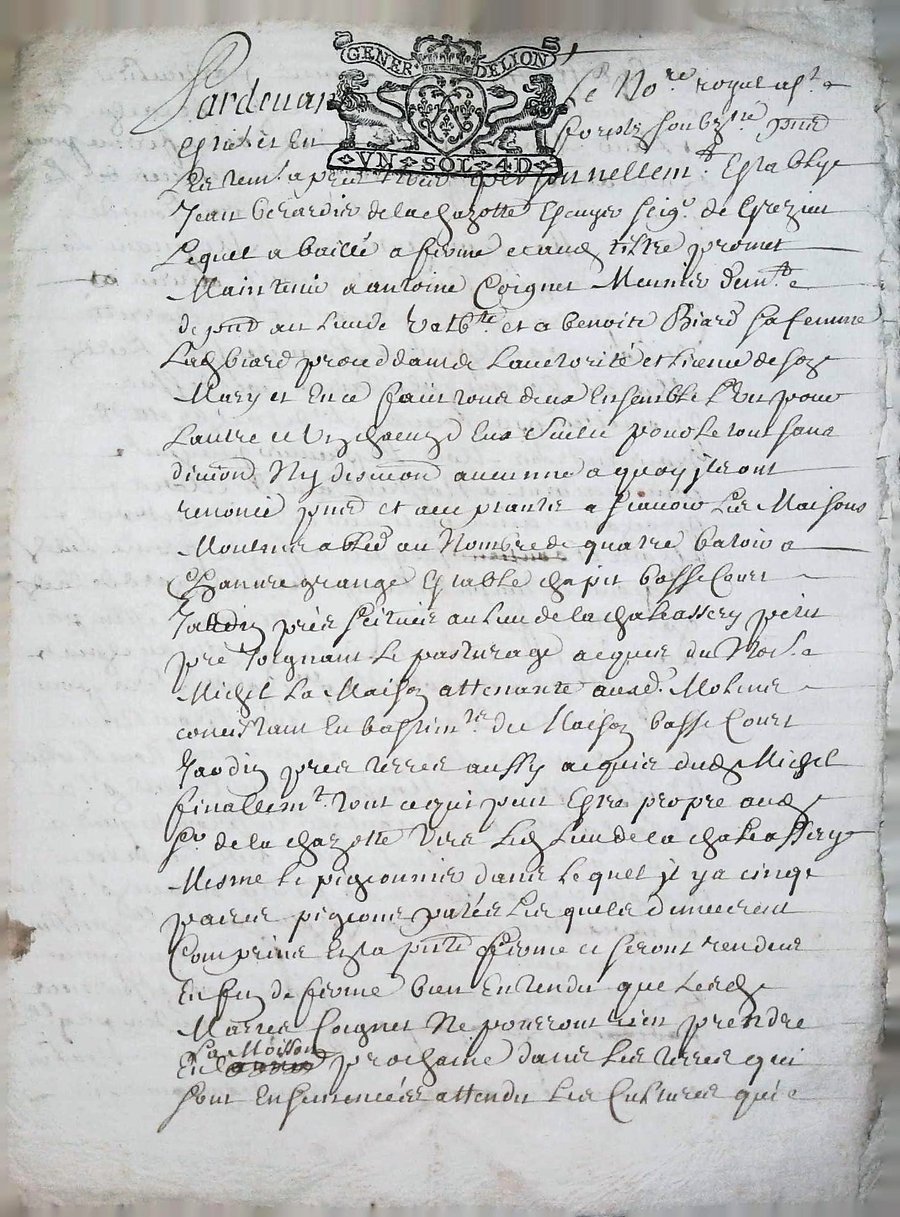 GENER DELION
VN SOL 4D
Pardevant Le No.re royal
et
personnellem.t Estably
Jean Berardier de la chazotte Escuyer seig.r de
Lequel a baillé a ferme et aud. tiltre promet
Maintenir a antoine Coignet Meunier dem.t
de pnt au Lieu de et a benoite Biard sa femme
Lad. biard de Lautorité et de son
Mary et En ce faict tous deux Ensemble L'un pour
Lautre et Un chacung deux Seul pour Le tout sans
division Ny discution aucunne a quoy jls ont
renoncé pnt et acceptants a scavoir Les Maisons
Moulins a bled au Nombre de quatre batoir a
Chanvre grange Estable chapit basse Court
Jardin prés scitués au Lieu de la chaleassery petit
pré Joignant Le pasturage acquis du
Michel La Maison attenante ausd. Molins
concistant En bastim.ts de Maison basse Court
Jardin prés terres aussy acquis dud. Michel
finallem.t tout ce qui peut Estre propre aud.
s.r de la chazotte Vers Led. Lieu de la chaleassery
Mesme Le pigeonnier dans Lequel jl y a cinqt
paires pigeons patés Lesquels demeureront
Comprins En la pnte ferme et seront rendus
En fin de ferme bien Entendu que Lesd.
Mariés Coignet Ne pourront rien prendre
La Moisson
En prochaine dans Les terres qui
sont Ensemencées attendu Les Cultures que